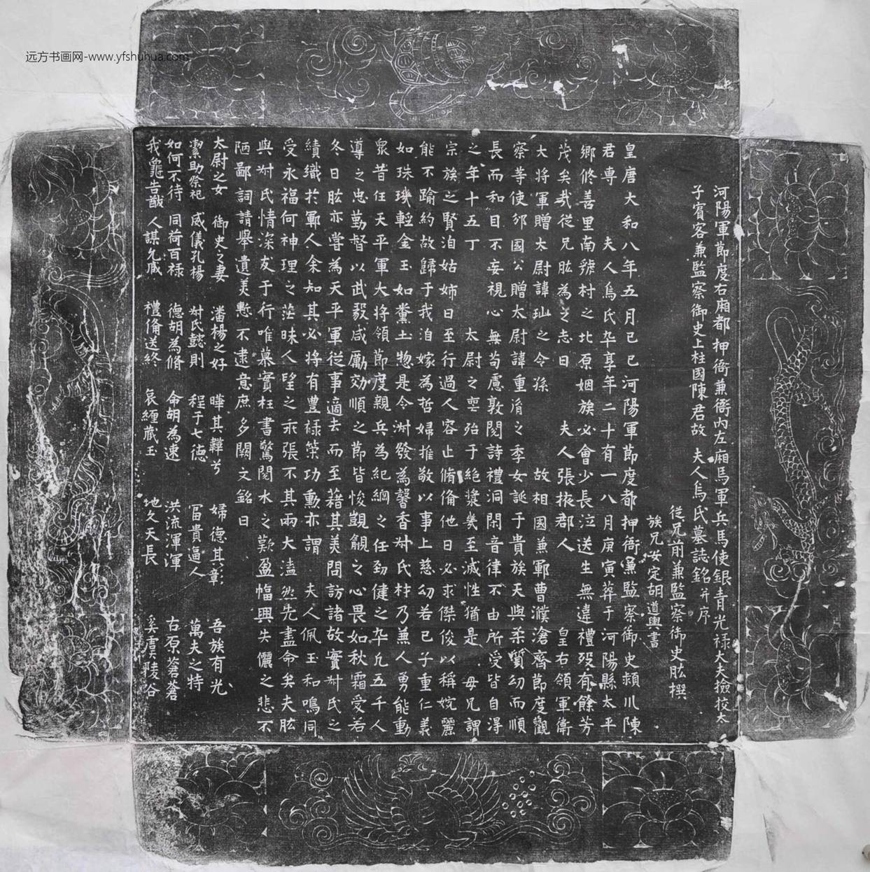 远方书画网-www.yfshuhua.com
河陽軍節度右厢都押衙兼衙内左厢馬軍兵馬使銀青光禄大夫撿挍太
子賓客兼監察御史上柱國陳君故 夫人烏氏墓誌銘并序
從兄前兼監察御史肱撰
族兄安定胡道興書
皇唐大和八年五月己巳河陽軍節度都押衙兼監察御史潁川陳
君専 夫人烏氏卒享年二十有一八月庚寅葬于河陽縣太平
鄉修善里南虢村之北原姻族必會少長泣送生無違禮殁有餘芳
茂矣哉從兄肱為之志曰 夫人張掖郡人 皇右領軍衛
大將軍贈太尉諱玭之令孫 故相國兼鄆曹濮滄齊節度觀
察等使邠國公贈太尉諱重胤之季女誕于貴族天與柔質幼而順
長而和目不妄視心無苟慮敦閱詩禮洞閑音律不由所受皆自得
之年十五丁 太尉之喪殆于絶漿癸至誠性猶是 毋兄謂
宗族之賢洎姑姉日至行過人容止脩俻他日必求傑俊以稱婉麗
能不踰約故歸于我洎嫁為哲婦推敬以事上慈幼若己子重仁義
如珠璣輕金玉如糞土惣是令淋發為馨香叔氏材乃兼人勇能動
衆昔在天平軍大將領節度親兵為紀綱之任勁健之卒凡五千人
導之忠勤督以武毅咸厲効順之節皆悛覬覦之心畏如秋霜愛若
冬日肱亦嘗為天平軍従事適去而至籍其美問訪諸故實叔氏之
績織於鄆人余知其必將有豊禄榮功勳亦謂 夫人佩玉和鳴同
受永福何神理之茫昧人望之乖張不其兩大溘然先盡命矣夫肱
與叔氏情深友于行唯㒼實枉書驚閱水之歎盈幅興失儷之悲不
陋鄙詞請舉遺美慙不逮意庶多闕文銘曰
太尉之女 御史之妻 潘楊之好 曄其韡兮 婦德其彰 吾族有光
潔助祭祀 威儀孔楊 叔氏懿則 程于七德 冨貴逼人 萬夫之特
如何不待 同荷百禄 德胡為脩 命胡為速 洪流渾渾 古原蒼蒼
我龜告猷 人謀允臧 禮俻送終 哀纏蔵玉 地久天長 奚虞陵谷